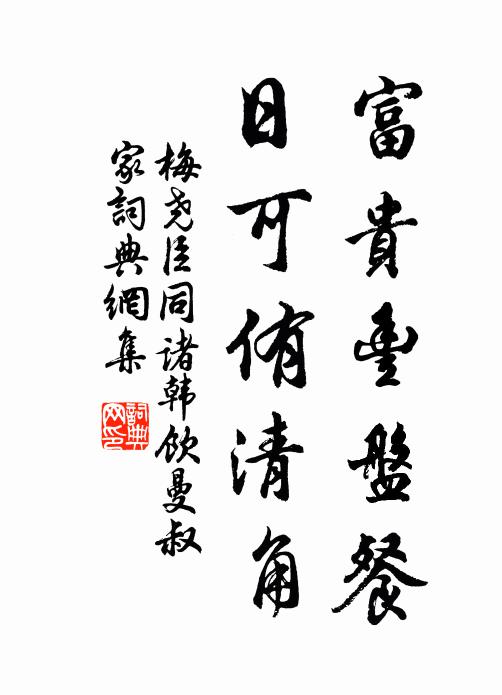 富貴豐盤餐
日可侑清角
梅尧臣同诸韩饮曼叔
家詞典網集
詞典
网印